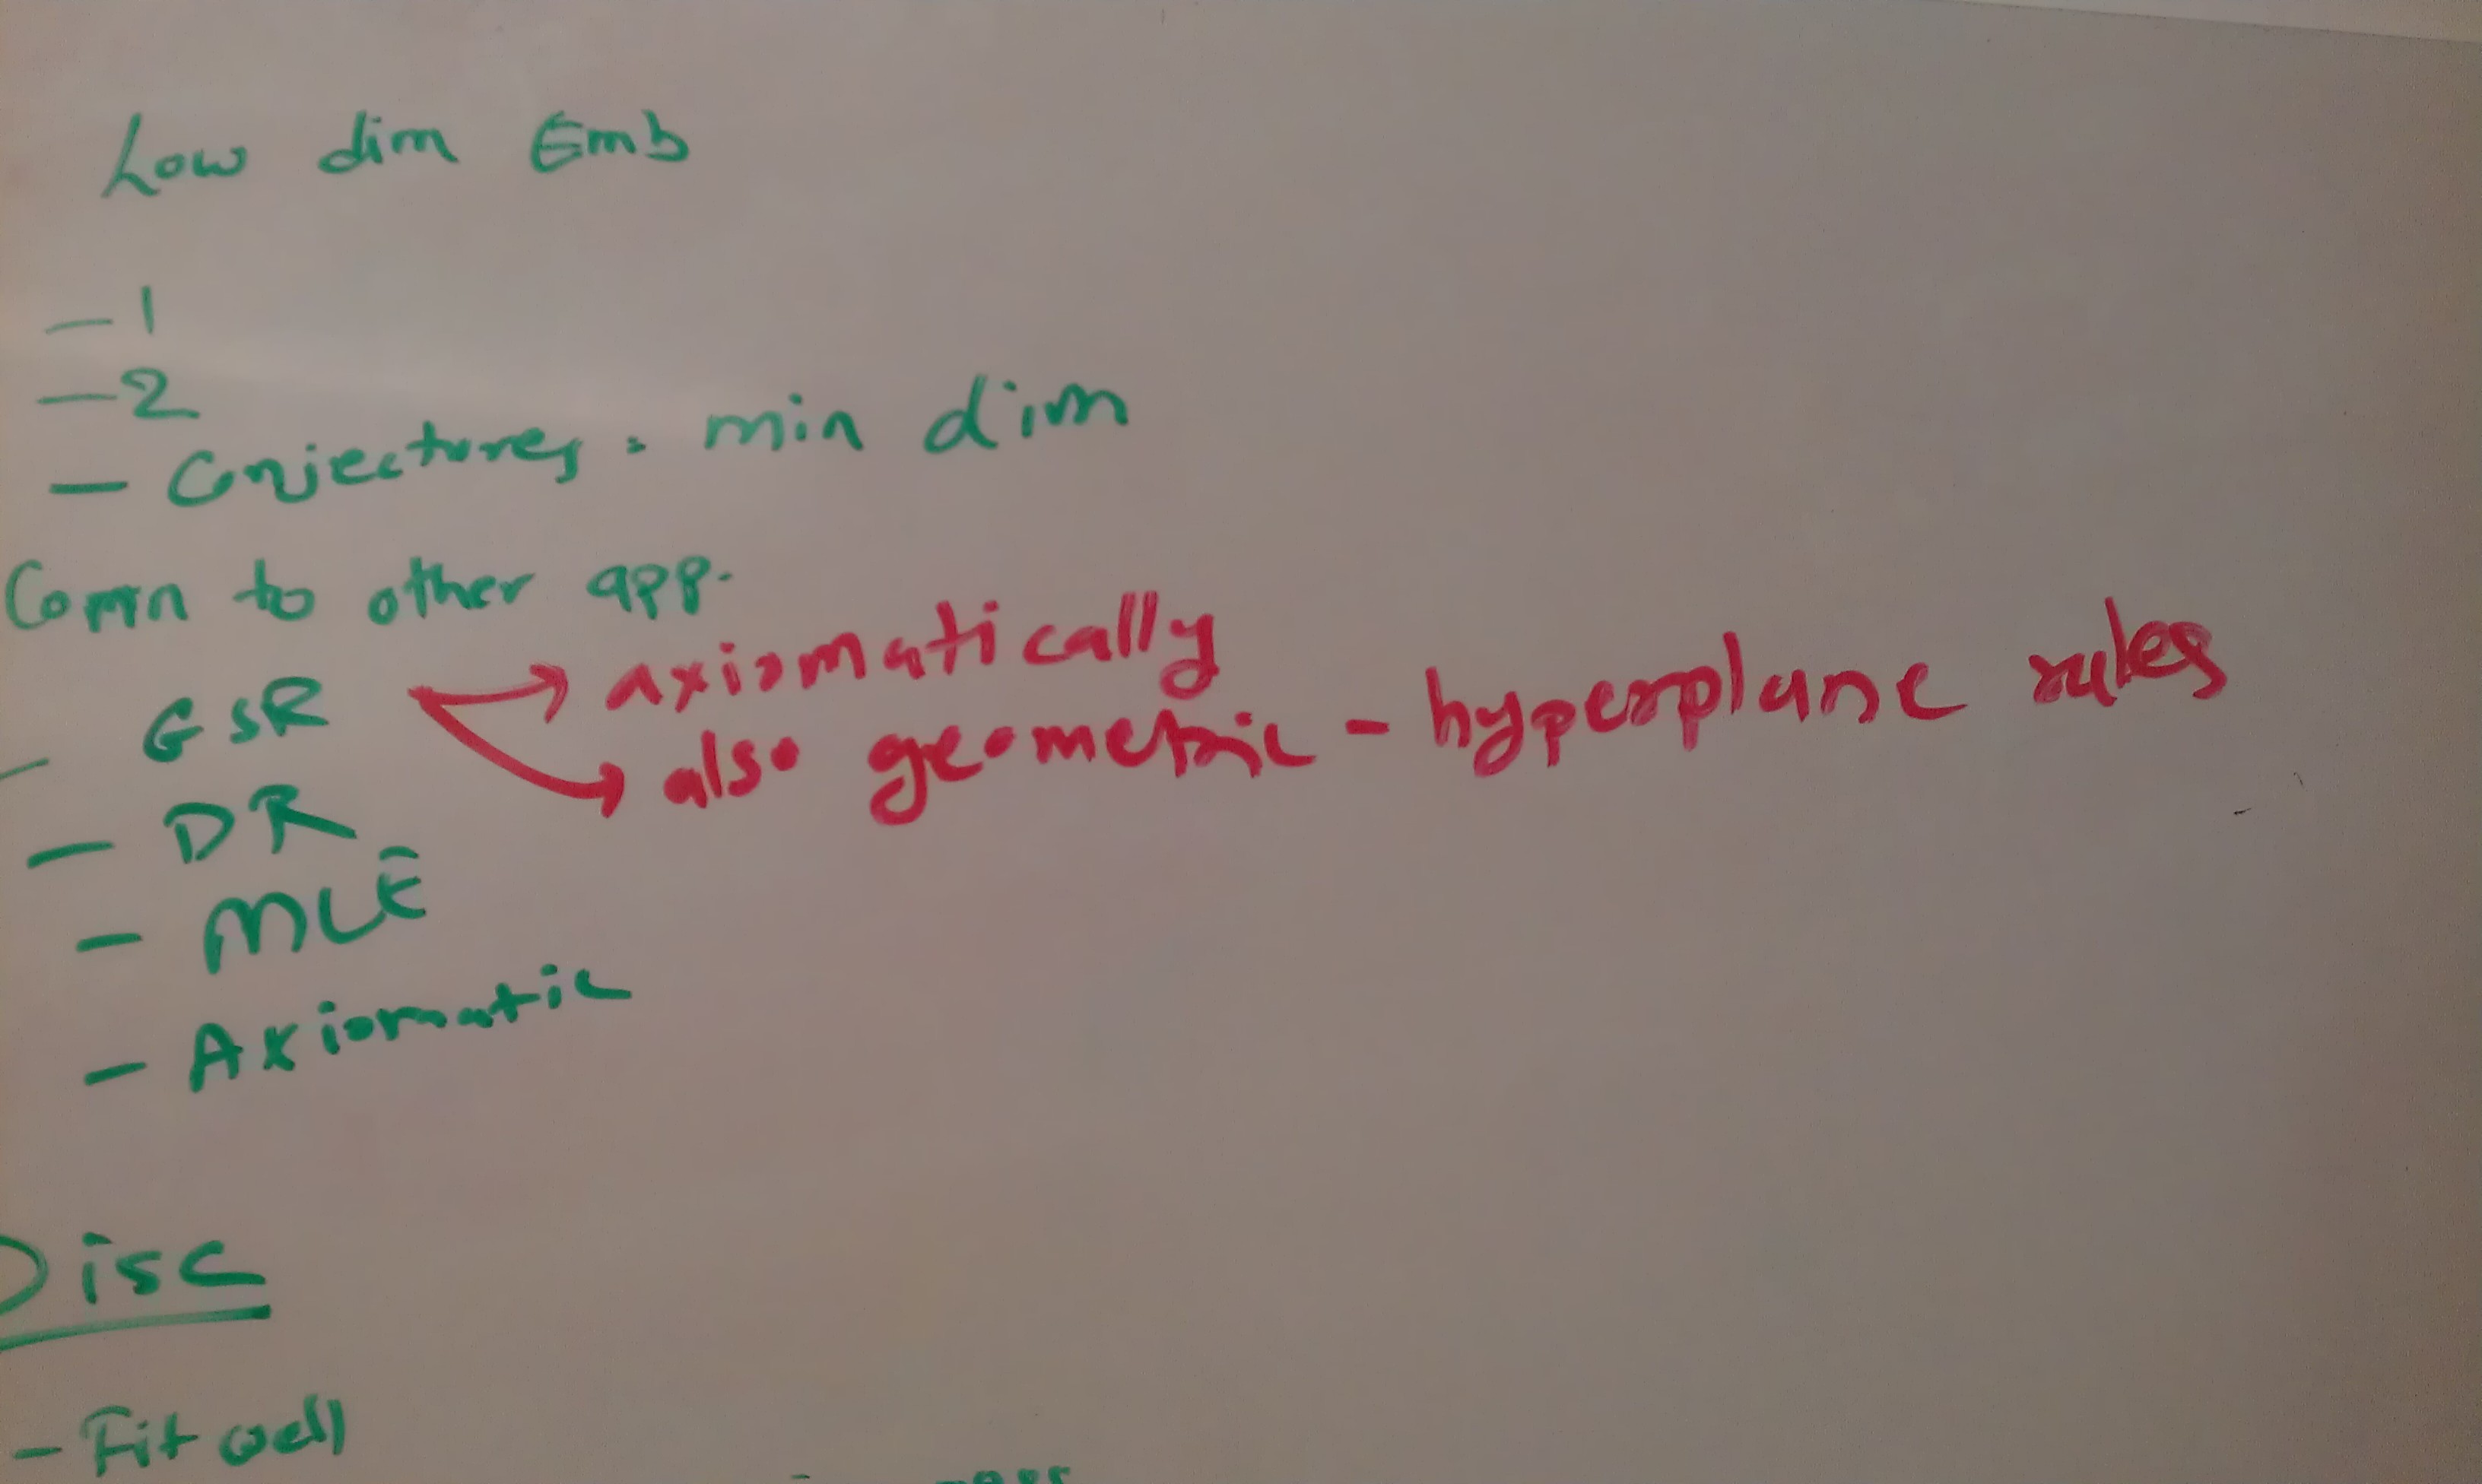 Low dim Emb
- 1
- 2
- Conjectures: min dim
Conn to other app.
- GSR → axiomatically
→ also geometric - hyperplane rules
- DR
- MLE
- Axiomatic
Disc
- Fit well